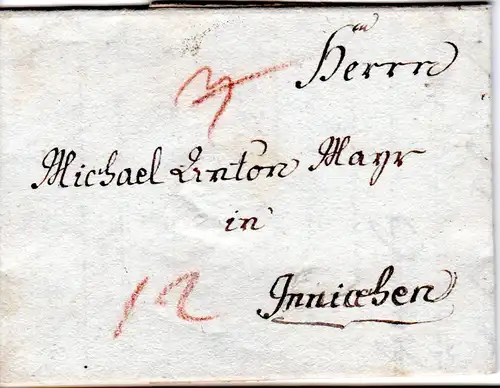 Herrn
Michael Anton Mayr
in
Innichen
12